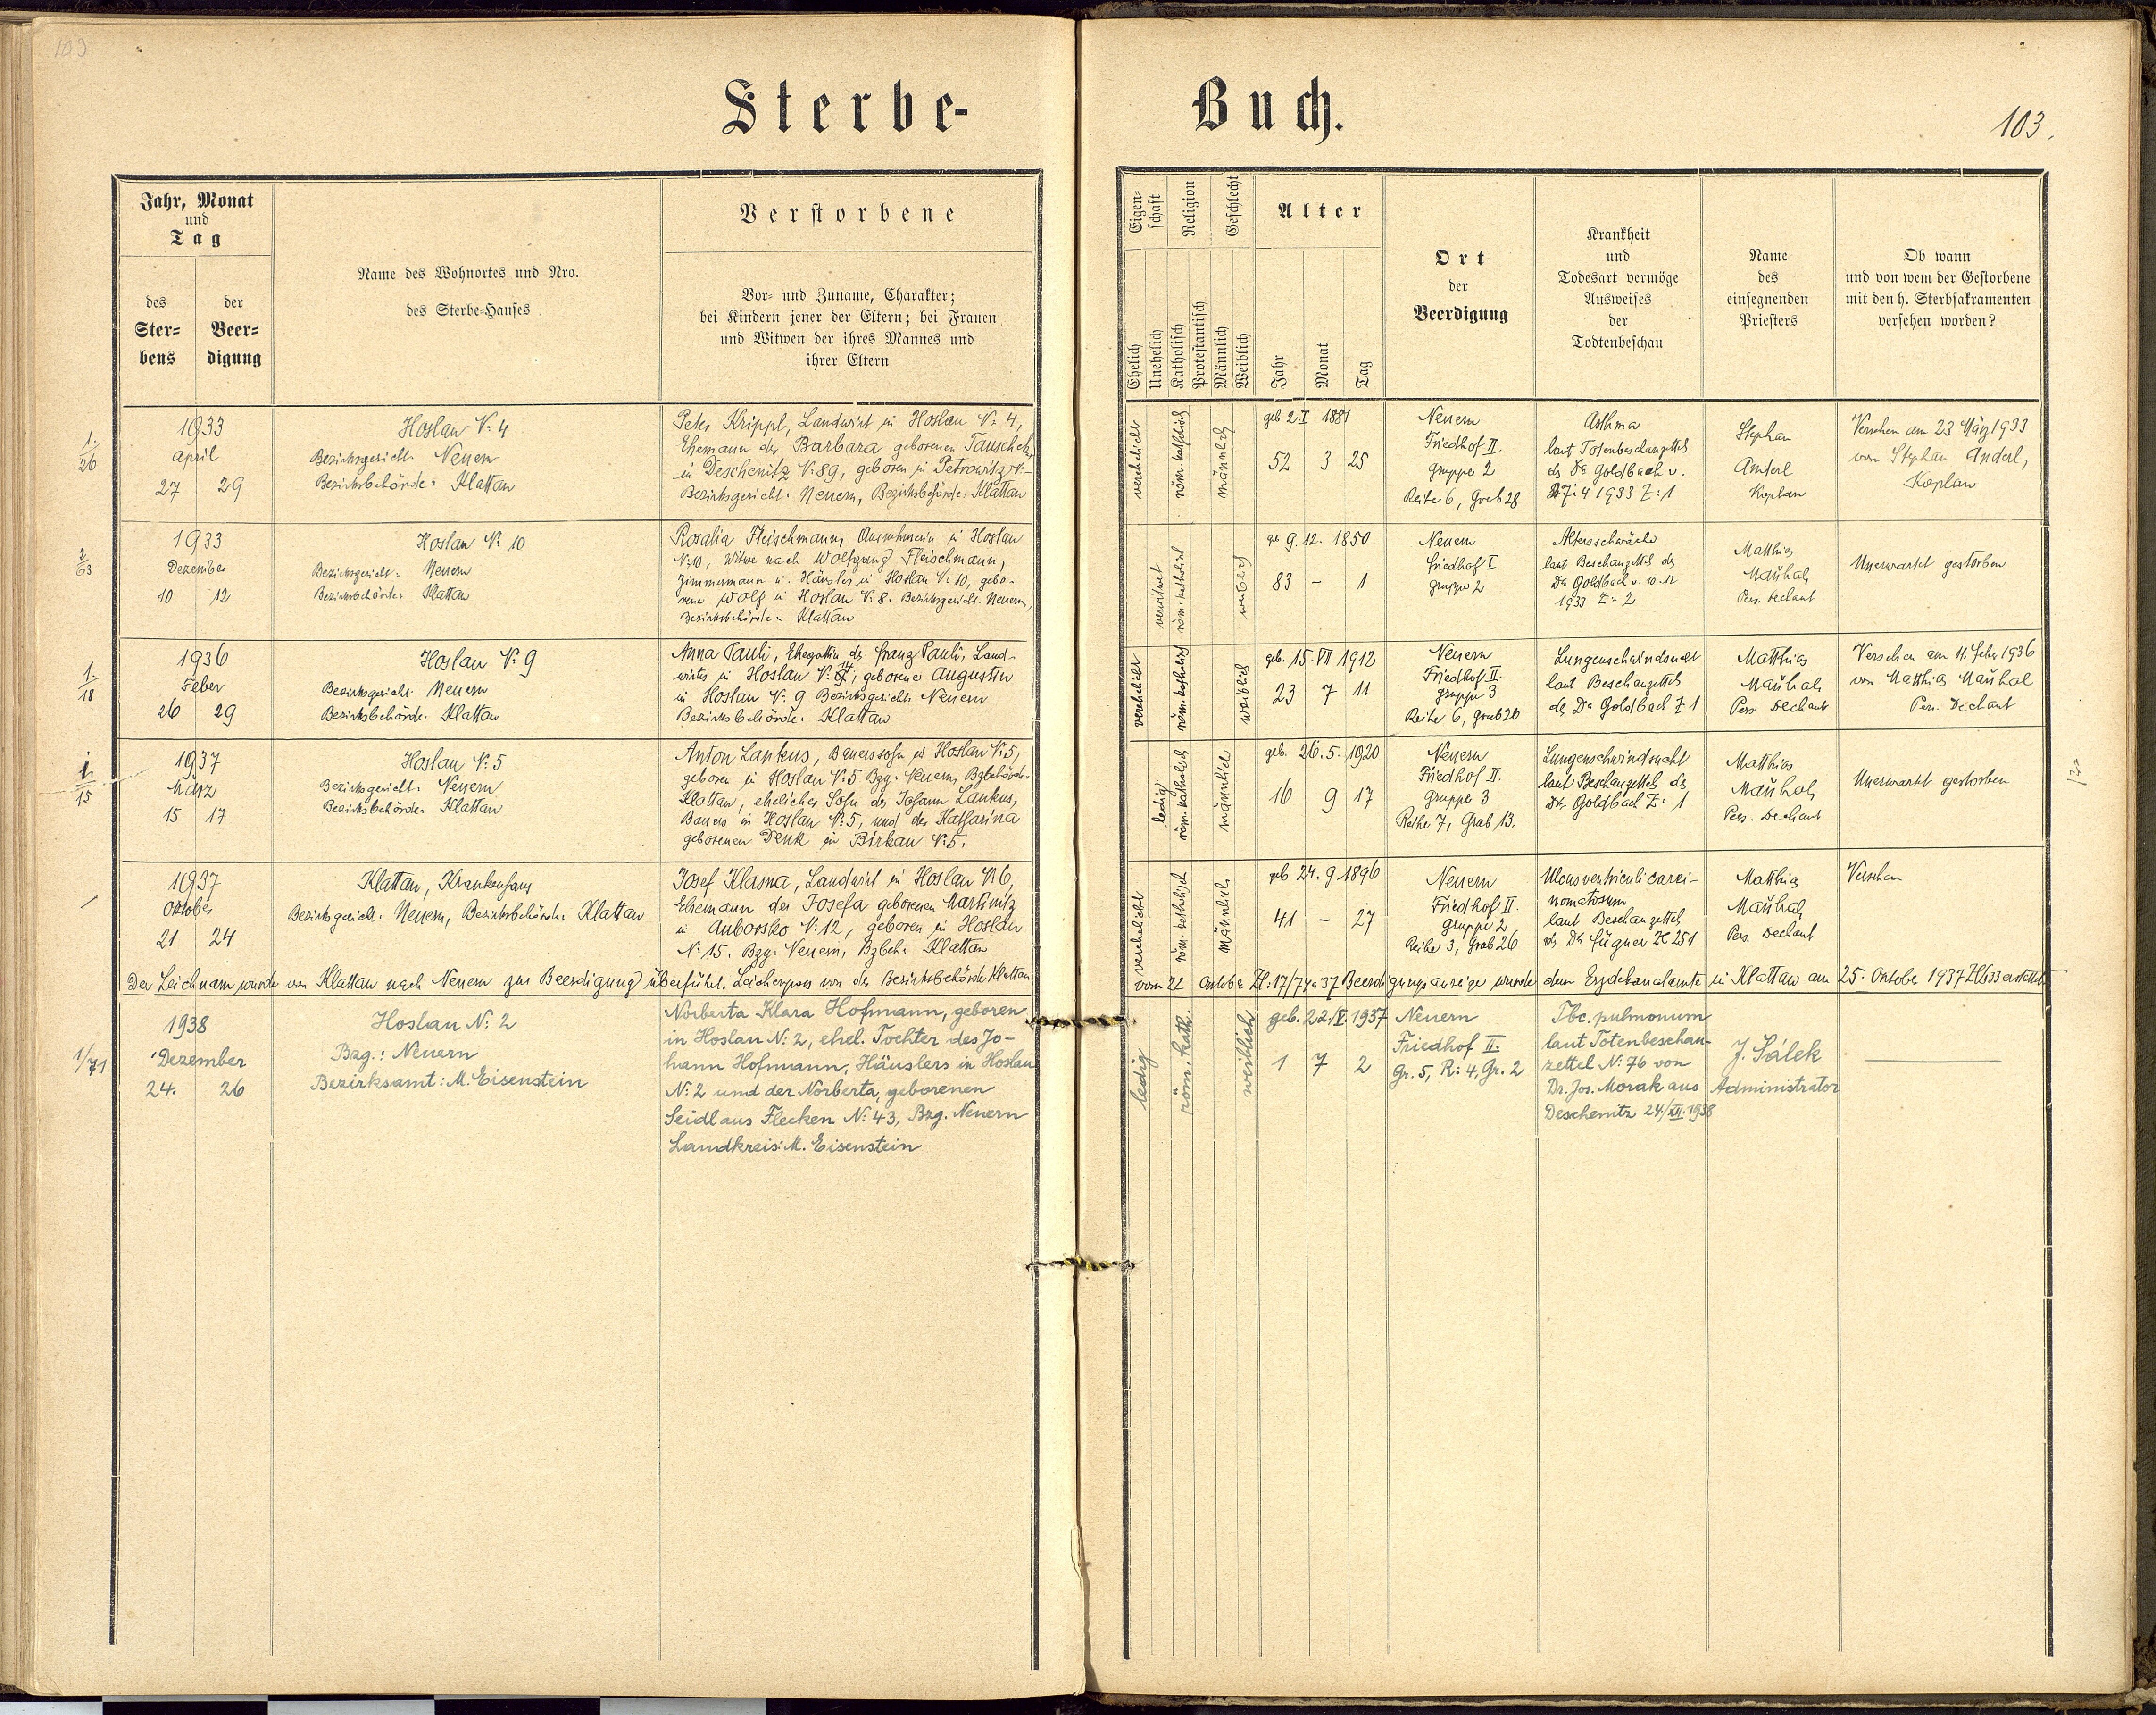 103
Sterbe-
Buch.
103.
Jahr, Monat
und
Tag
des
Ster-
bens
der
Beer-
digung
Name des Wohnortes und Nro.
des Sterbe-Hauses
Verstorbene
Vor- und Zuname, Charakter;
bei Kindern jener der Eltern; bei Frauen
und Witwen der ihres Mannes und
ihrer Eltern
Eigen-
schaft
Religion
Geschlecht
Ehelich
Unehelich
Katholisch
Protestantisch
Männlich
Weiblich
Alter
Jahr
Monat
Tag
Ort
der
Beerdigung
Krankheit
und
Todesart vermöge
Ausweises
der
Todtenbeschau
Name
des
einsegnenden
Priesters
Ob wann
und von wem der Gestorbene
mit den h. Sterbsakramenten
versehen worden?
1/26
1933
April
27 29
Hoslau N: 4
Bezirksgericht: Neuern
Bezirksbehörde: Klattau
Peter Krippl, Landwirt in Hoslau N: 4,
Ehemann der Barbara geborenen Tauschek
in Deschenitz N: 89, geboren in Petrowitz N:-
Bezirksgericht: Neuern, Bezirksbehörde: Klattau
verehelicht
röm. katholisch
männlich
geb 2.I 1881
52 3 25
Neuern
Friedhof II.
Gruppe 2
Reihe 6, Grab 28
Asthma
laut Totenbeschauzettel
des Dr Goldbach v.
27.4 1933 Z: 1
Stephan
Anderl
Kaplan
Versehen am 23 März 1933
von Stephan Anderl,
Kaplan
2/63
1933
Dezember
10 12
Hoslau N: 10
Bezirksgericht: Neuern
Bezirksbehörde: Klattau
Rosalia Fleischmann, Ausnehmerin in Hoslau
N: 10, Witwe nach Wolfgang Fleischmann,
Zimmermann u. Häusler in Hoslau N: 10, gebo-
rene Wolf in Hoslau N: 8. Bezirksgericht: Neuern,
Bezirksbehörde: Klattau
verwitwet
röm. katholisch
weiblich
ge 9. 12. 1850
83 - 1
Neuern
Friedhof I
Gruppe 2
Altersschwäche
laut Beschauzettel des
Dr Goldbach v. 10.12
1933 Z: 2
Matthias
Maúhal
Pers. Dechant
Unerwartet gestorben
1/18
1936
Feber
26 29
Hoslau N: 9
Bezirksgericht: Neuern
Bezirksbehörde: Klattau
Anna Pauli, Ehegattin des Franz Pauli, Land-
wirtes in Hoslau N: 14, geborene Augustin
in Hoslau N: 9 Bezirksgericht: Neuern
Bezirksbehörde: Klattau
verehelicht
röm. katholisch
weiblich
geb. 15. VII 1912
23 7 11
Neuern
Friedhof II.
Gruppe 3
Reihe 6, Grab 20
Lungenschwindsucht
laut Beschauzettel
des Dr Goldbach Z 1
Matthias
Maúhal
Pers. Dechant
Versehen am 11. Feber 1936
von Matthias Maúhal
Pers. Dechant
1/15
1937
März
15 17
Hoslau N: 5
Bezirksgericht: Neuern
Bezirksbehörde: Klattau
Anton Lankus, Bauerssohn in Hoslau N: 5,
geboren in Hoslau N: 5 Bzg. Neuern, Bzbehörde.
Klattau, ehelicher Sohn des Johann Lankus,
Bauers in Hoslau N: 5, und der Katharina
geborenen Denk in Birkau N: 5.
ledig
röm. katholisch
männlich
geb. 26. 5. 1920
16 9 17
Neuern
Friedhof II.
Gruppe 3
Reihe 7, Grab 13.
Lungenschwindsucht
laut Beschauzettel des
Dr. Goldbach Z: 1
Matthias
Maúhal
Pers. Dechant
Unerwartet gestorben
1937
Oktober
21 24
Klattau, Krankenhaus
Bezirksgericht: Neuern, Bezirksbehörde: Klattau
Josef Klasna, Landwirt in Hoslau N: 6,
Ehemann der Josefa geborenen Martinitz
in Auborsko N: 12, geboren in Hoslau
N: 15. Bzg. Neuern, Bzbeh: Klattau
verehelicht
röm. katholisch
männlich
geb 24. 9 1896
41 - 27
Neuern
Friedhof II.
Gruppe 2
Reihe 3, Grab 26
Ulcus ventriculi carci-
nomatosum
laut Beschauzettel
des Dr Fügner Zl 251
Matthias
Maúhal
Pers. Dechant
Versehen
Der Leichnam wurde von Klattau nach Neuern zur Beerdigung überführt. Leichenpass von der Bezirksbehörde Klattau
vom 22 Oktober Zl: 17/74a 37 Beerdigungsanzeige wurde dem Erzdekanalamte in Klattau am 25. Oktober 1937 erstattet
1/71
1938
Dezember
24. 26
Hoslau N: 2
Bzg.: Neuern
Bezirksamt: M. Eisenstein
Norberta Klara Hofmann, geboren
in Hoslau N: 2, ehel. Tochter des Jo-
hann Hofmann, Häuslers in Hoslau
N: 2 und der Norberta, geborenen
Seidl aus Flecken N: 43, Bzg. Neuern
Landkreis: M. Eisenstein
ledig
röm. kath.
weiblich
geb. 22./V. 1937
1 7 2
Neuern
Friedhof II.
Gr. 5, R: 4, Gr. 2
Tbc. pulmonum
laut Totenbeschau-
zettel N: 76 von
Dr. Jos. Morak aus
Deschenitz 24/XII. 1938
J. Sálek
Administrator